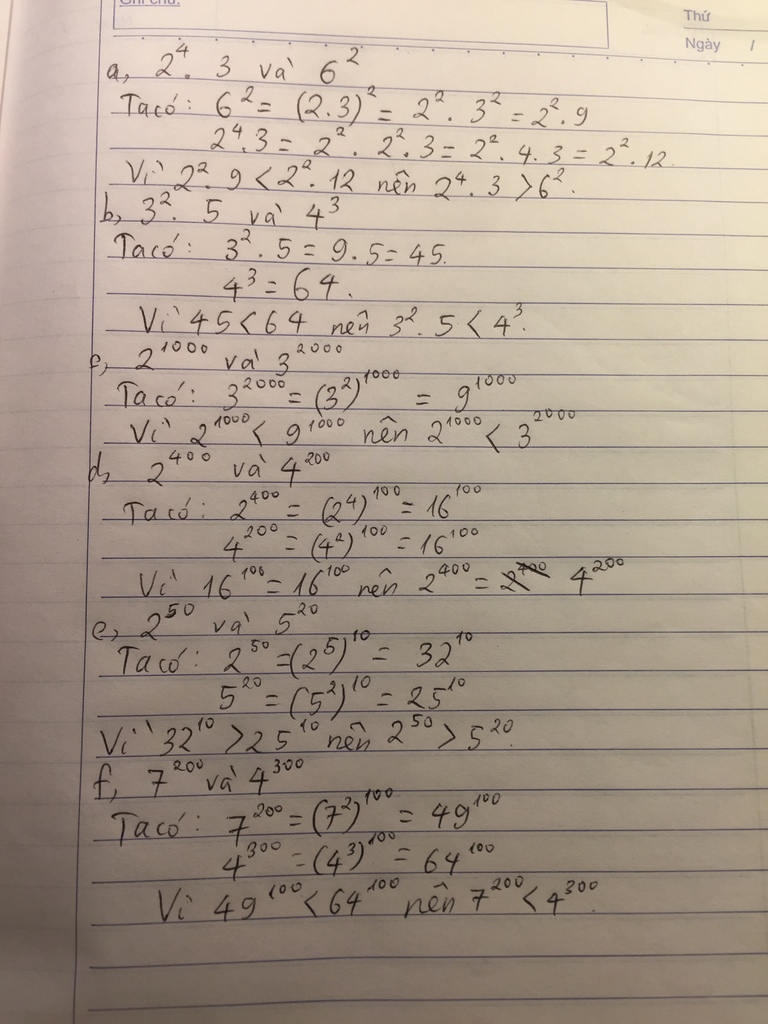 Ghi chú:
Thứ
Ngày /
a, 2⁴. 3 và 6²
Ta có: 6² = (2.3)² = 2². 3² = 2². 9
2⁴.3 = 2². 2².3 = 2². 4. 3 = 2². 12.
Vì 2². 9 < 2². 12 nên 2⁴. 3 > 6².
b, 3². 5 và 4³
Ta có: 3². 5 = 9. 5 = 45.
4³ = 64.
Vì 45 < 64 nên 3². 5 < 4³.
c, 2¹⁰⁰⁰ và 3²⁰⁰⁰
Ta có: 3²⁰⁰⁰ = (3²)¹⁰⁰⁰ = 9¹⁰⁰⁰
Vì 2¹⁰⁰⁰ < 9¹⁰⁰⁰ nên 2¹⁰⁰⁰ < 3²⁰⁰⁰
d, 2⁴⁰⁰ và 4²⁰⁰
Ta có: 2⁴⁰⁰ = (2⁴)¹⁰⁰ = 16¹⁰⁰
4²⁰⁰ = (4²)¹⁰⁰ = 16¹⁰⁰
Vì 16¹⁰⁰ = 16¹⁰⁰ nên 2⁴⁰⁰ = 4²⁰⁰
e, 2⁵⁰ và 5²⁰
Ta có: 2⁵⁰ = (2⁵)¹⁰ = 32¹⁰
5²⁰ = (5²)¹⁰ = 25¹⁰
Vì 32¹⁰ > 25¹⁰ nên 2⁵⁰ > 5²⁰.
f, 7²⁰⁰ và 4³⁰⁰
Ta có: 7²⁰⁰ = (7²)¹⁰⁰ = 49¹⁰⁰
4³⁰⁰ = (4³)¹⁰⁰ = 64¹⁰⁰
Vì 49¹⁰⁰ < 64¹⁰⁰ nên 7²⁰⁰ < 4³⁰⁰.